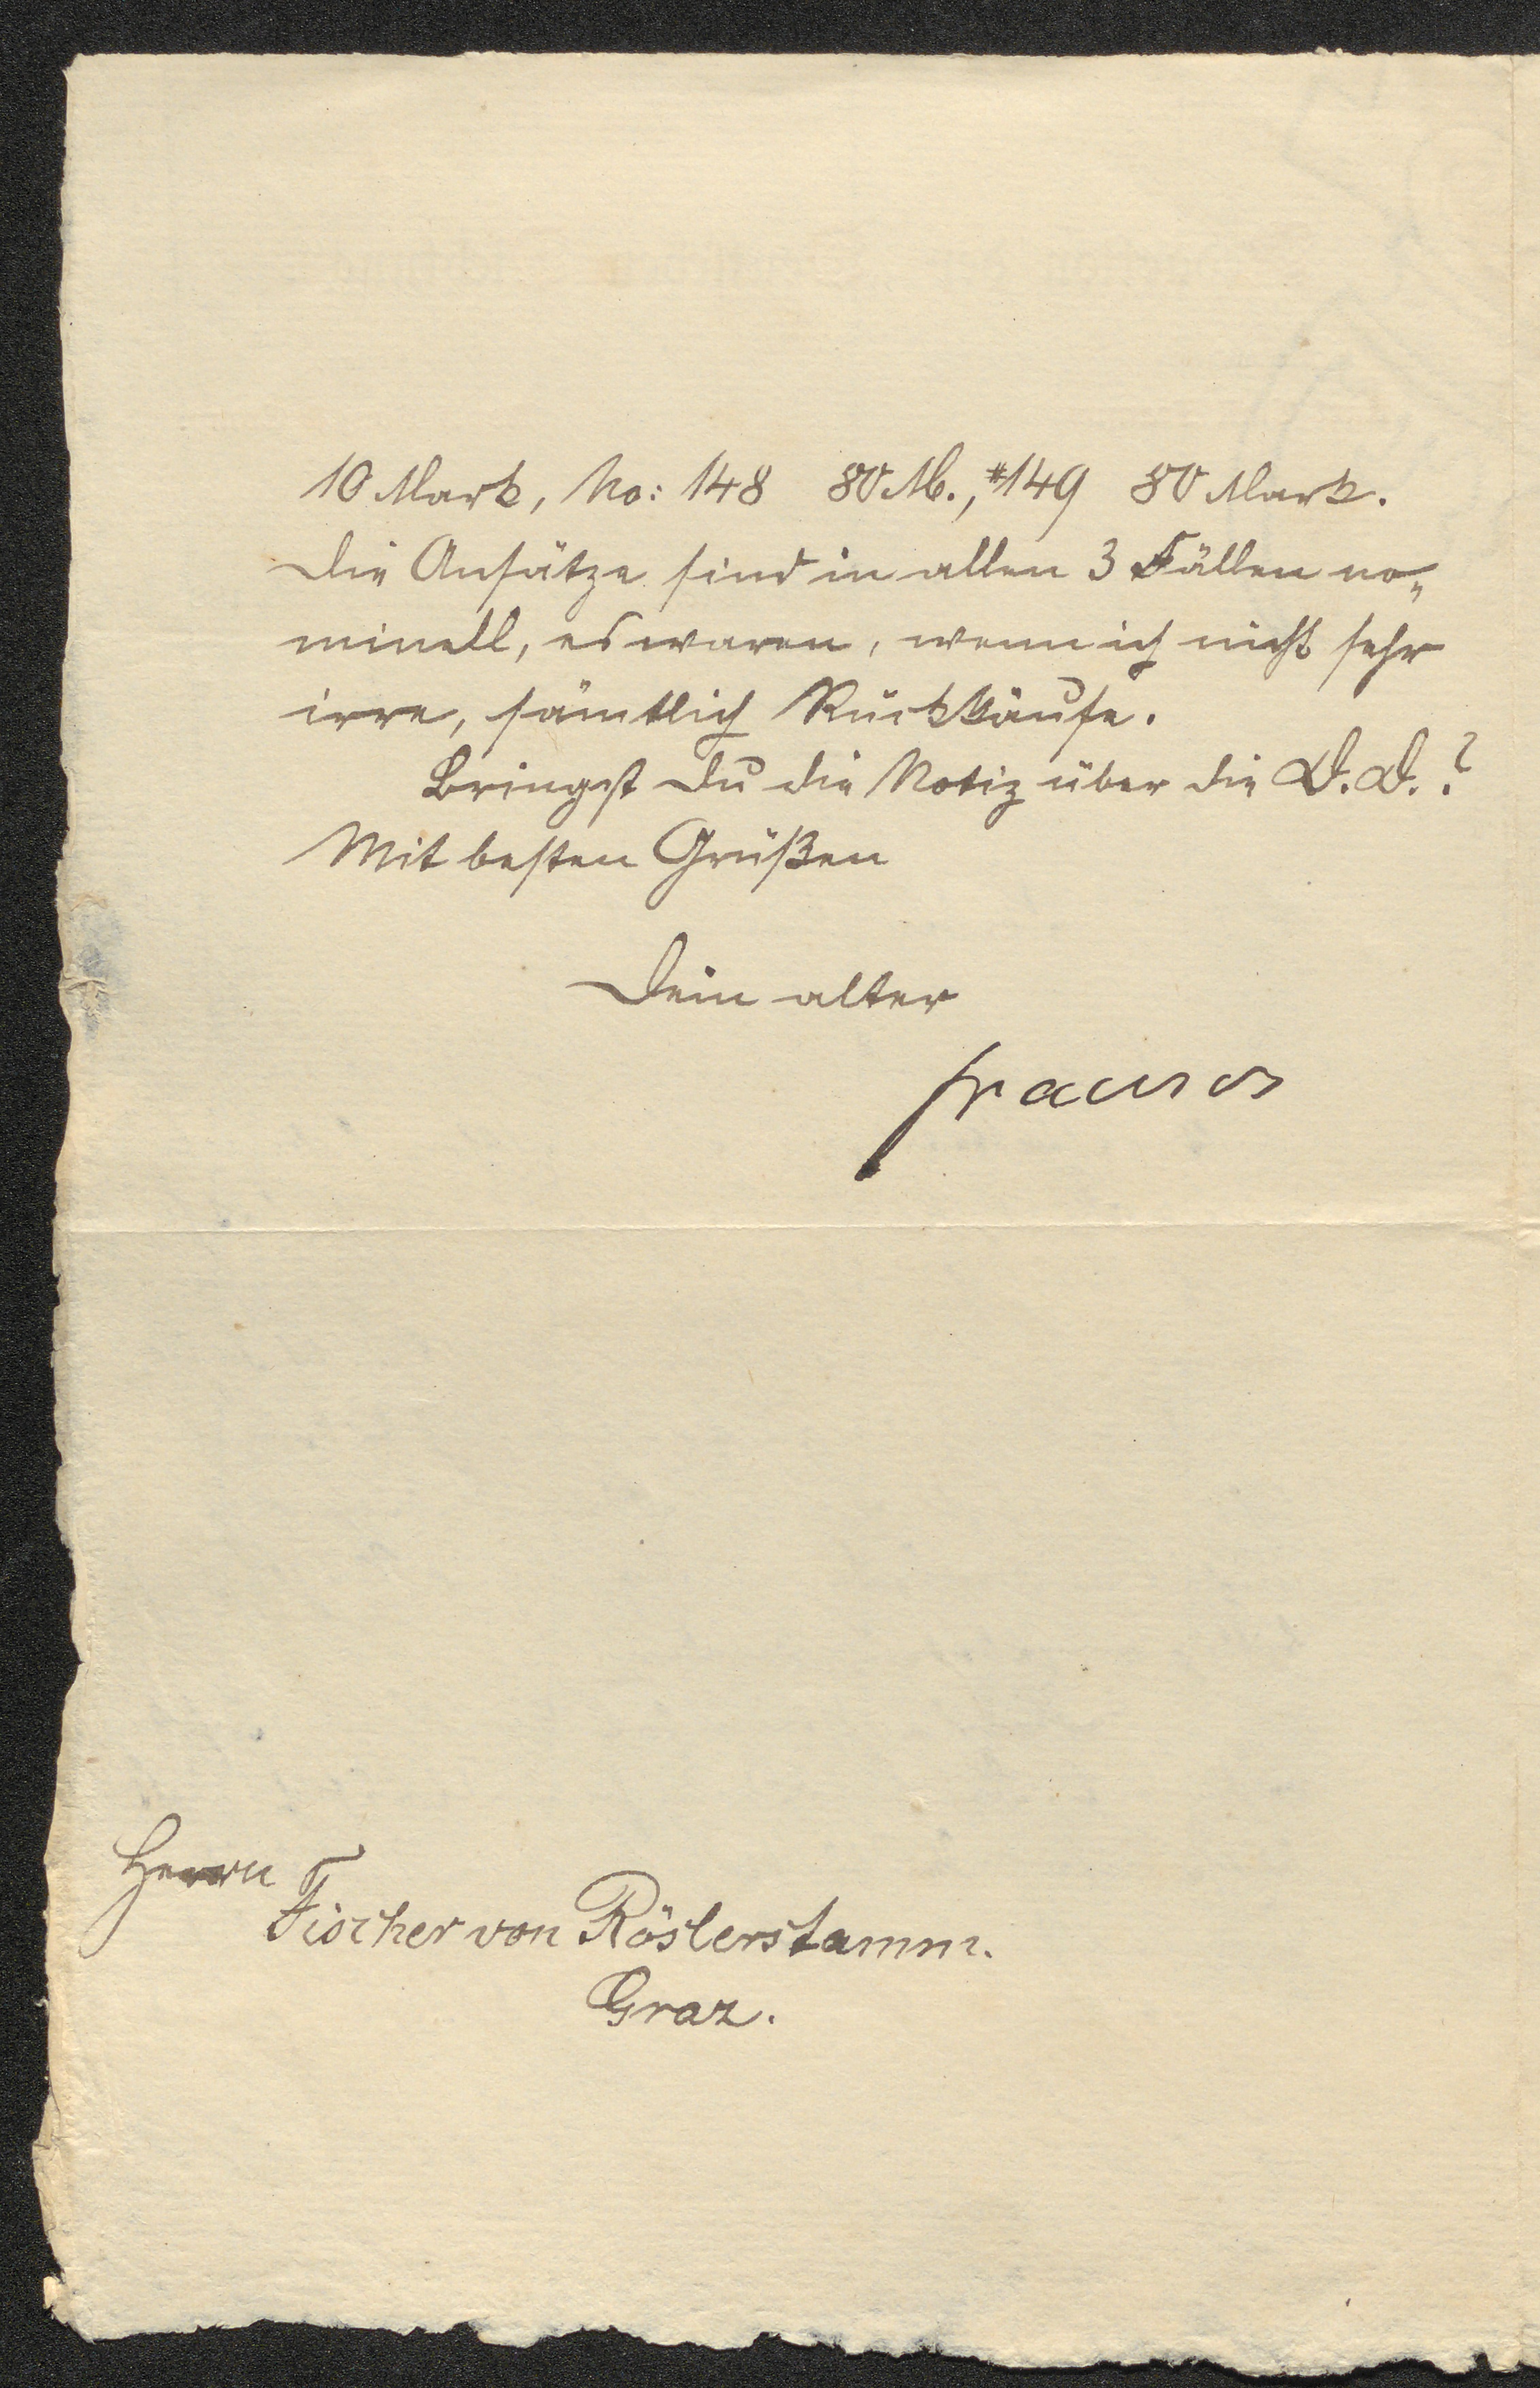 10 Mark, No: 148 80 M., #149 80 Mark.
Die Ansätze sind in allen 3 Fällen no„
minell, es waren, wenn ich nicht sehr
irre, sämtlich Rückkäufe.
Bringst Du die Notiz über die D. D.?
Mit besten Grüßen
Dein alter
franzos
Herrn
Fischer von Röslerstamm.
Graz.